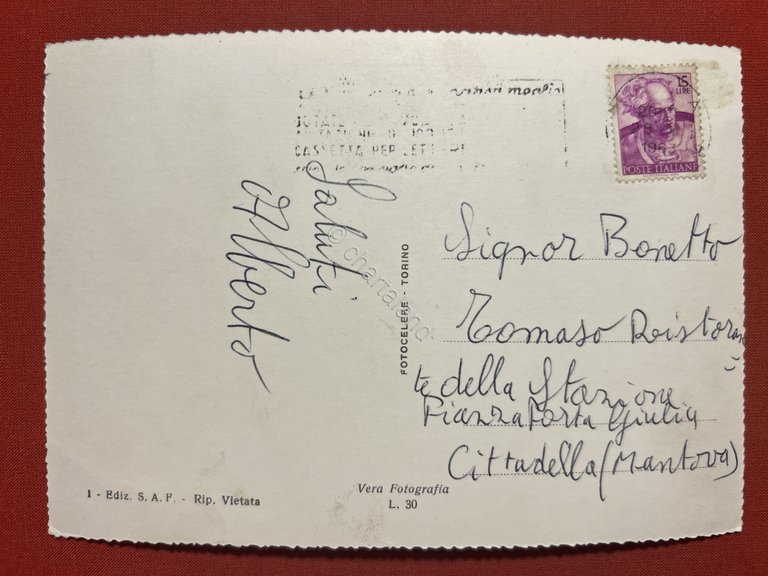 15
LIRE
POSTE ITALIANE
1963
CASSETTA PER LETTERE
Saluti
Alberto
© chartaland
FOTOCELERE - TORINO
Signor Bonetto
Tomaso Ristoran
=
te della Stazione
Piazza Porta Giulia
Cittadella (Mantova)
1 - Ediz. S. A. F. - Rip. Vietata
Vera Fotografia
L. 30